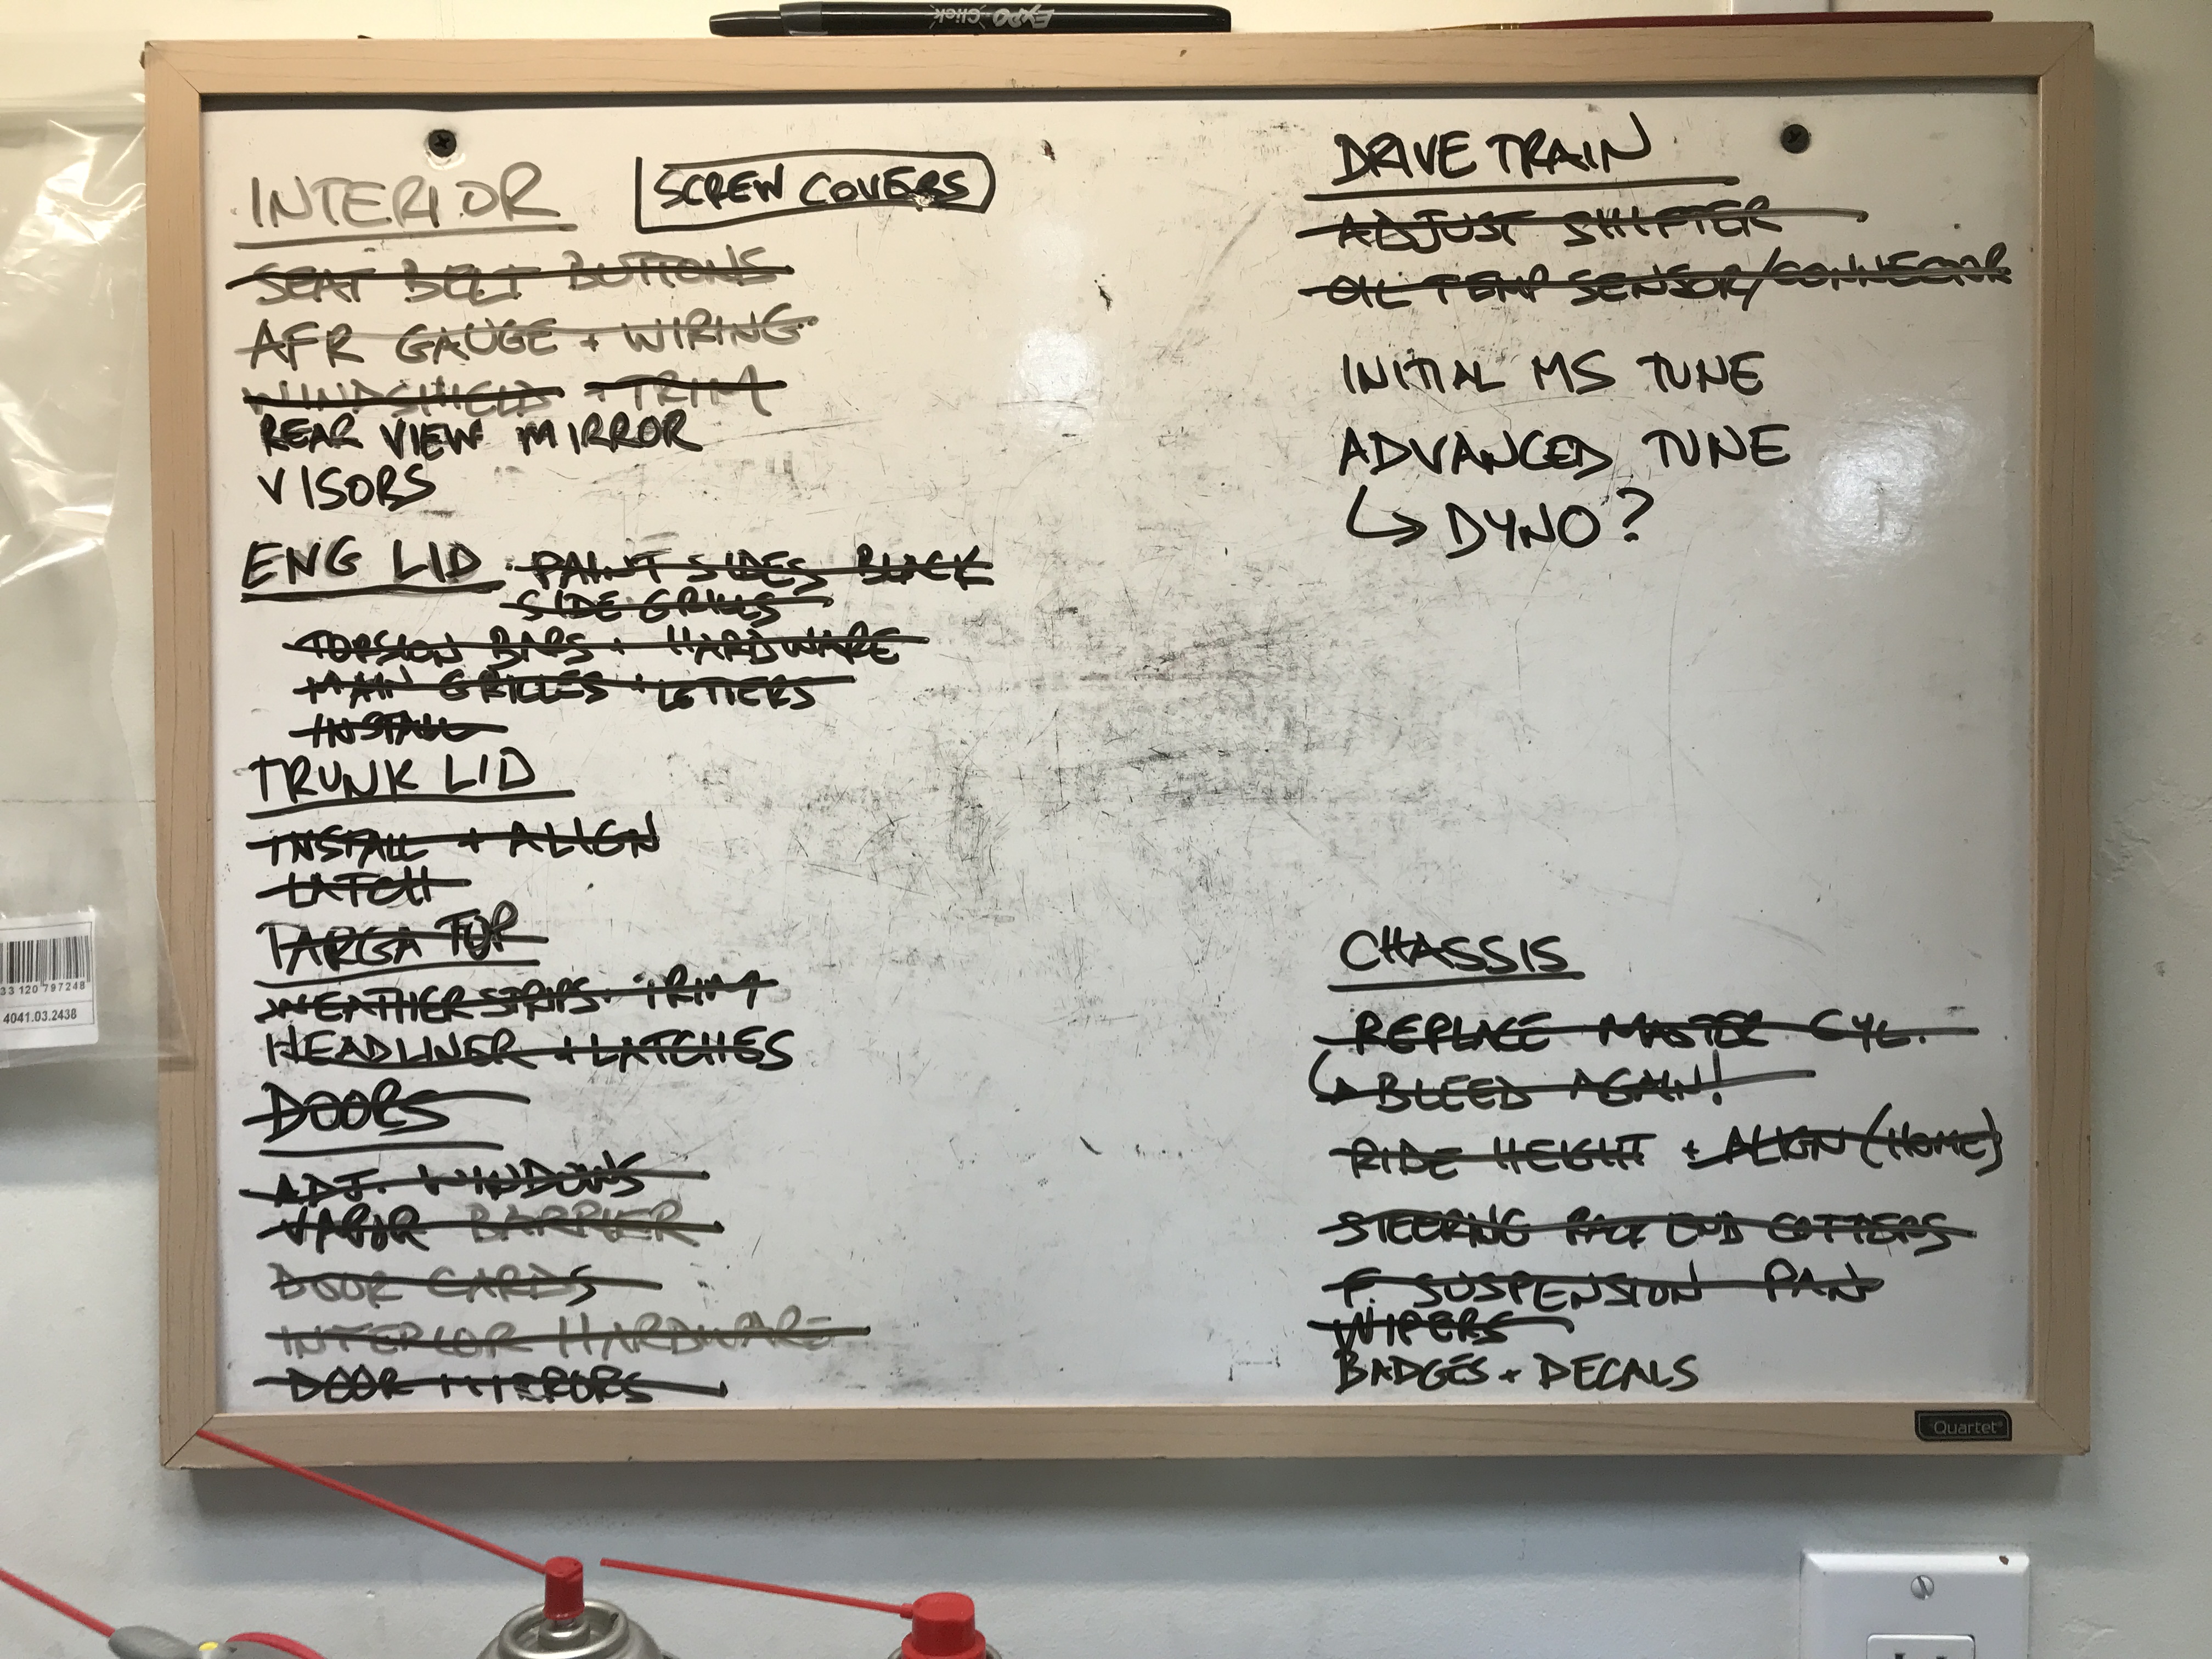 EXPO Click
INTERIOR
SCREW COVERS
SEAT BELT BUTTONS
AFR GAUGE + WIRING
WINDSHIELD + TRIM
REAR VIEW MIRROR
VISORS
ENG LID · PAINT SIDES BLACK
SIDE GRILLS
TORSION BARS + HARDWARE
MAIN GRILLES + LETTERS
INSTALL
TRUNK LID
INSTALL + ALIGN
LATCH
TARGA TOP
WEATHER STRIPS + TRIM
HEADLINER + LATCHES
DOORS
ADJ. WINDOWS
VAPOR BARRIER
DOOR CARDS
INTERIOR HARDWARE
DOOR MIRRORS
DRIVE TRAIN
ADJUST SHIFTER
OIL TEMP SENSOR/CONNECTOR
INITIAL MS TUNE
ADVANCED TUNE
↳ DYNO?
CHASSIS
REPLACE MASTER CYL.
↳ BLEED AGAIN!
RIDE HEIGHT + ALIGN (HOME)
STEERING RACK END COTTERS
F. SUSPENSION PAN
WIPERS
BADGES + DECALS
Quartet
33 120 797248
4041.03.2438